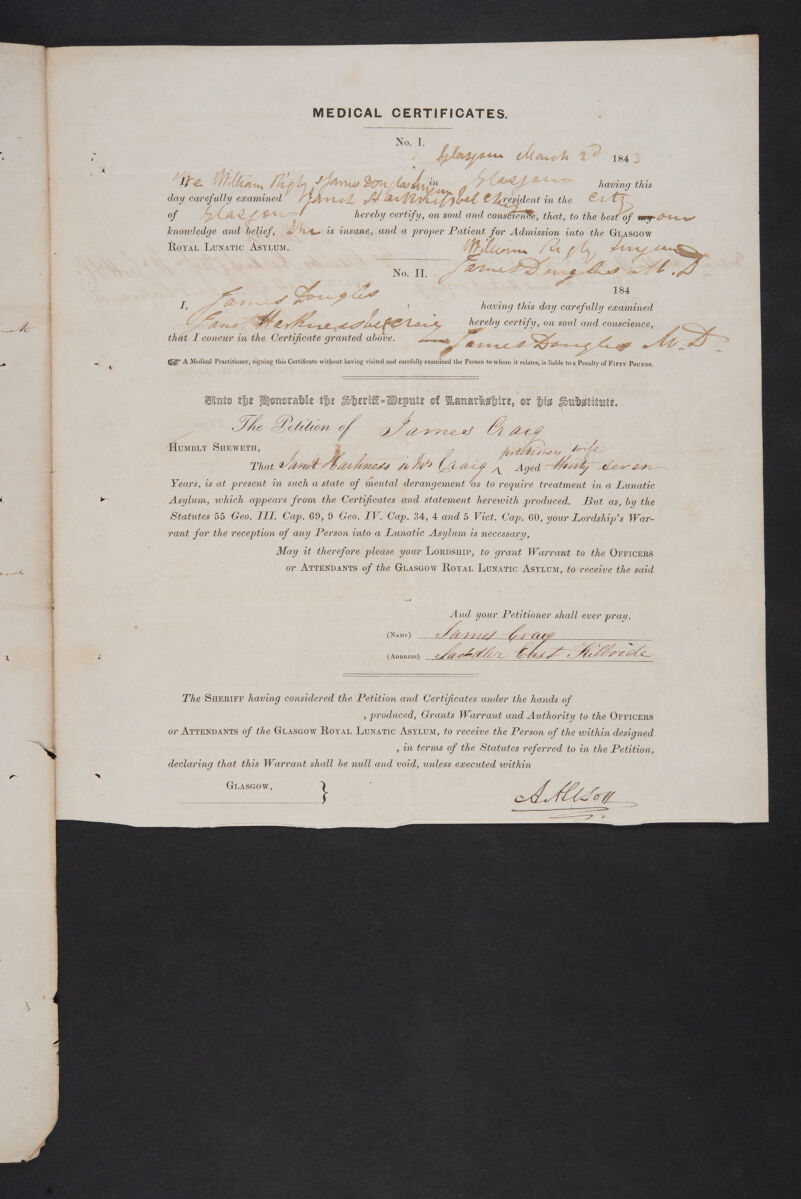 MEDICAL CERTIFICATES.
No. I.
Glasgow March 2d 1843
We William Rigby & James Douglas in Glasgow having this
day carefully examined Janet Harkness resident in the City
of Glasgow hereby certify, on soul and conscience, that, to the best of my our
knowledge and belief, She is insane, and a proper Patient for Admission into the GLASGOW
ROYAL LUNATIC ASYLUM. William Rigby Surgeon
No. II. James Douglas M.D
184
I, James Douglas having this day carefully examined
Janet Harkness Craig hereby certify, on soul and conscience,
that I concur in the Certificate granted above. James Douglas M.D.
☞ A Medical Practitioner, signing this Certificate without having visited and carefully examined the Person to whom it relates, is liable to a Penalty of FIFTY POUNDS.
Unto the Honorable the Sheriff-Depute of Lanarkshire, or his Substitute.
The Petition of James Craig
HUMBLY SHEWETH, petitioners wife
That Janet Harkness or Mrs Craig ^ Aged thirty seven
Years, is at present in such a state of mental derangement as to require treatment in a Lunatic
Asylum, which appears from the Certificates and statement herewith produced. But as, by the
Statutes 55 Geo. III. Cap. 69, 9 Geo. IV. Cap. 34, 4 and 5 Vict. Cap. 60, your Lordship's War-
rant for the reception of any Person into a Lunatic Asylum is necessary,
May it therefore please your LORDSHIP, to grant Warrant to the OFFICERS
or ATTENDANTS of the GLASGOW ROYAL LUNATIC ASYLUM, to receive the said
And your Petitioner shall ever pray.
(NAME) James Craig
(ADDRESS) Saddler East Kilbride
The SHERIFF having considered the Petition and Certificates under the hands of
, produced, Grants Warrant and Authority to the OFFICERS
or ATTENDANTS of the GLASGOW ROYAL LUNATIC ASYLUM, to receive the Person of the within designed
, in terms of the Statutes referred to in the Petition,
declaring that this Warrant shall be null and void, unless executed within
GLASGOW, }
A Alison